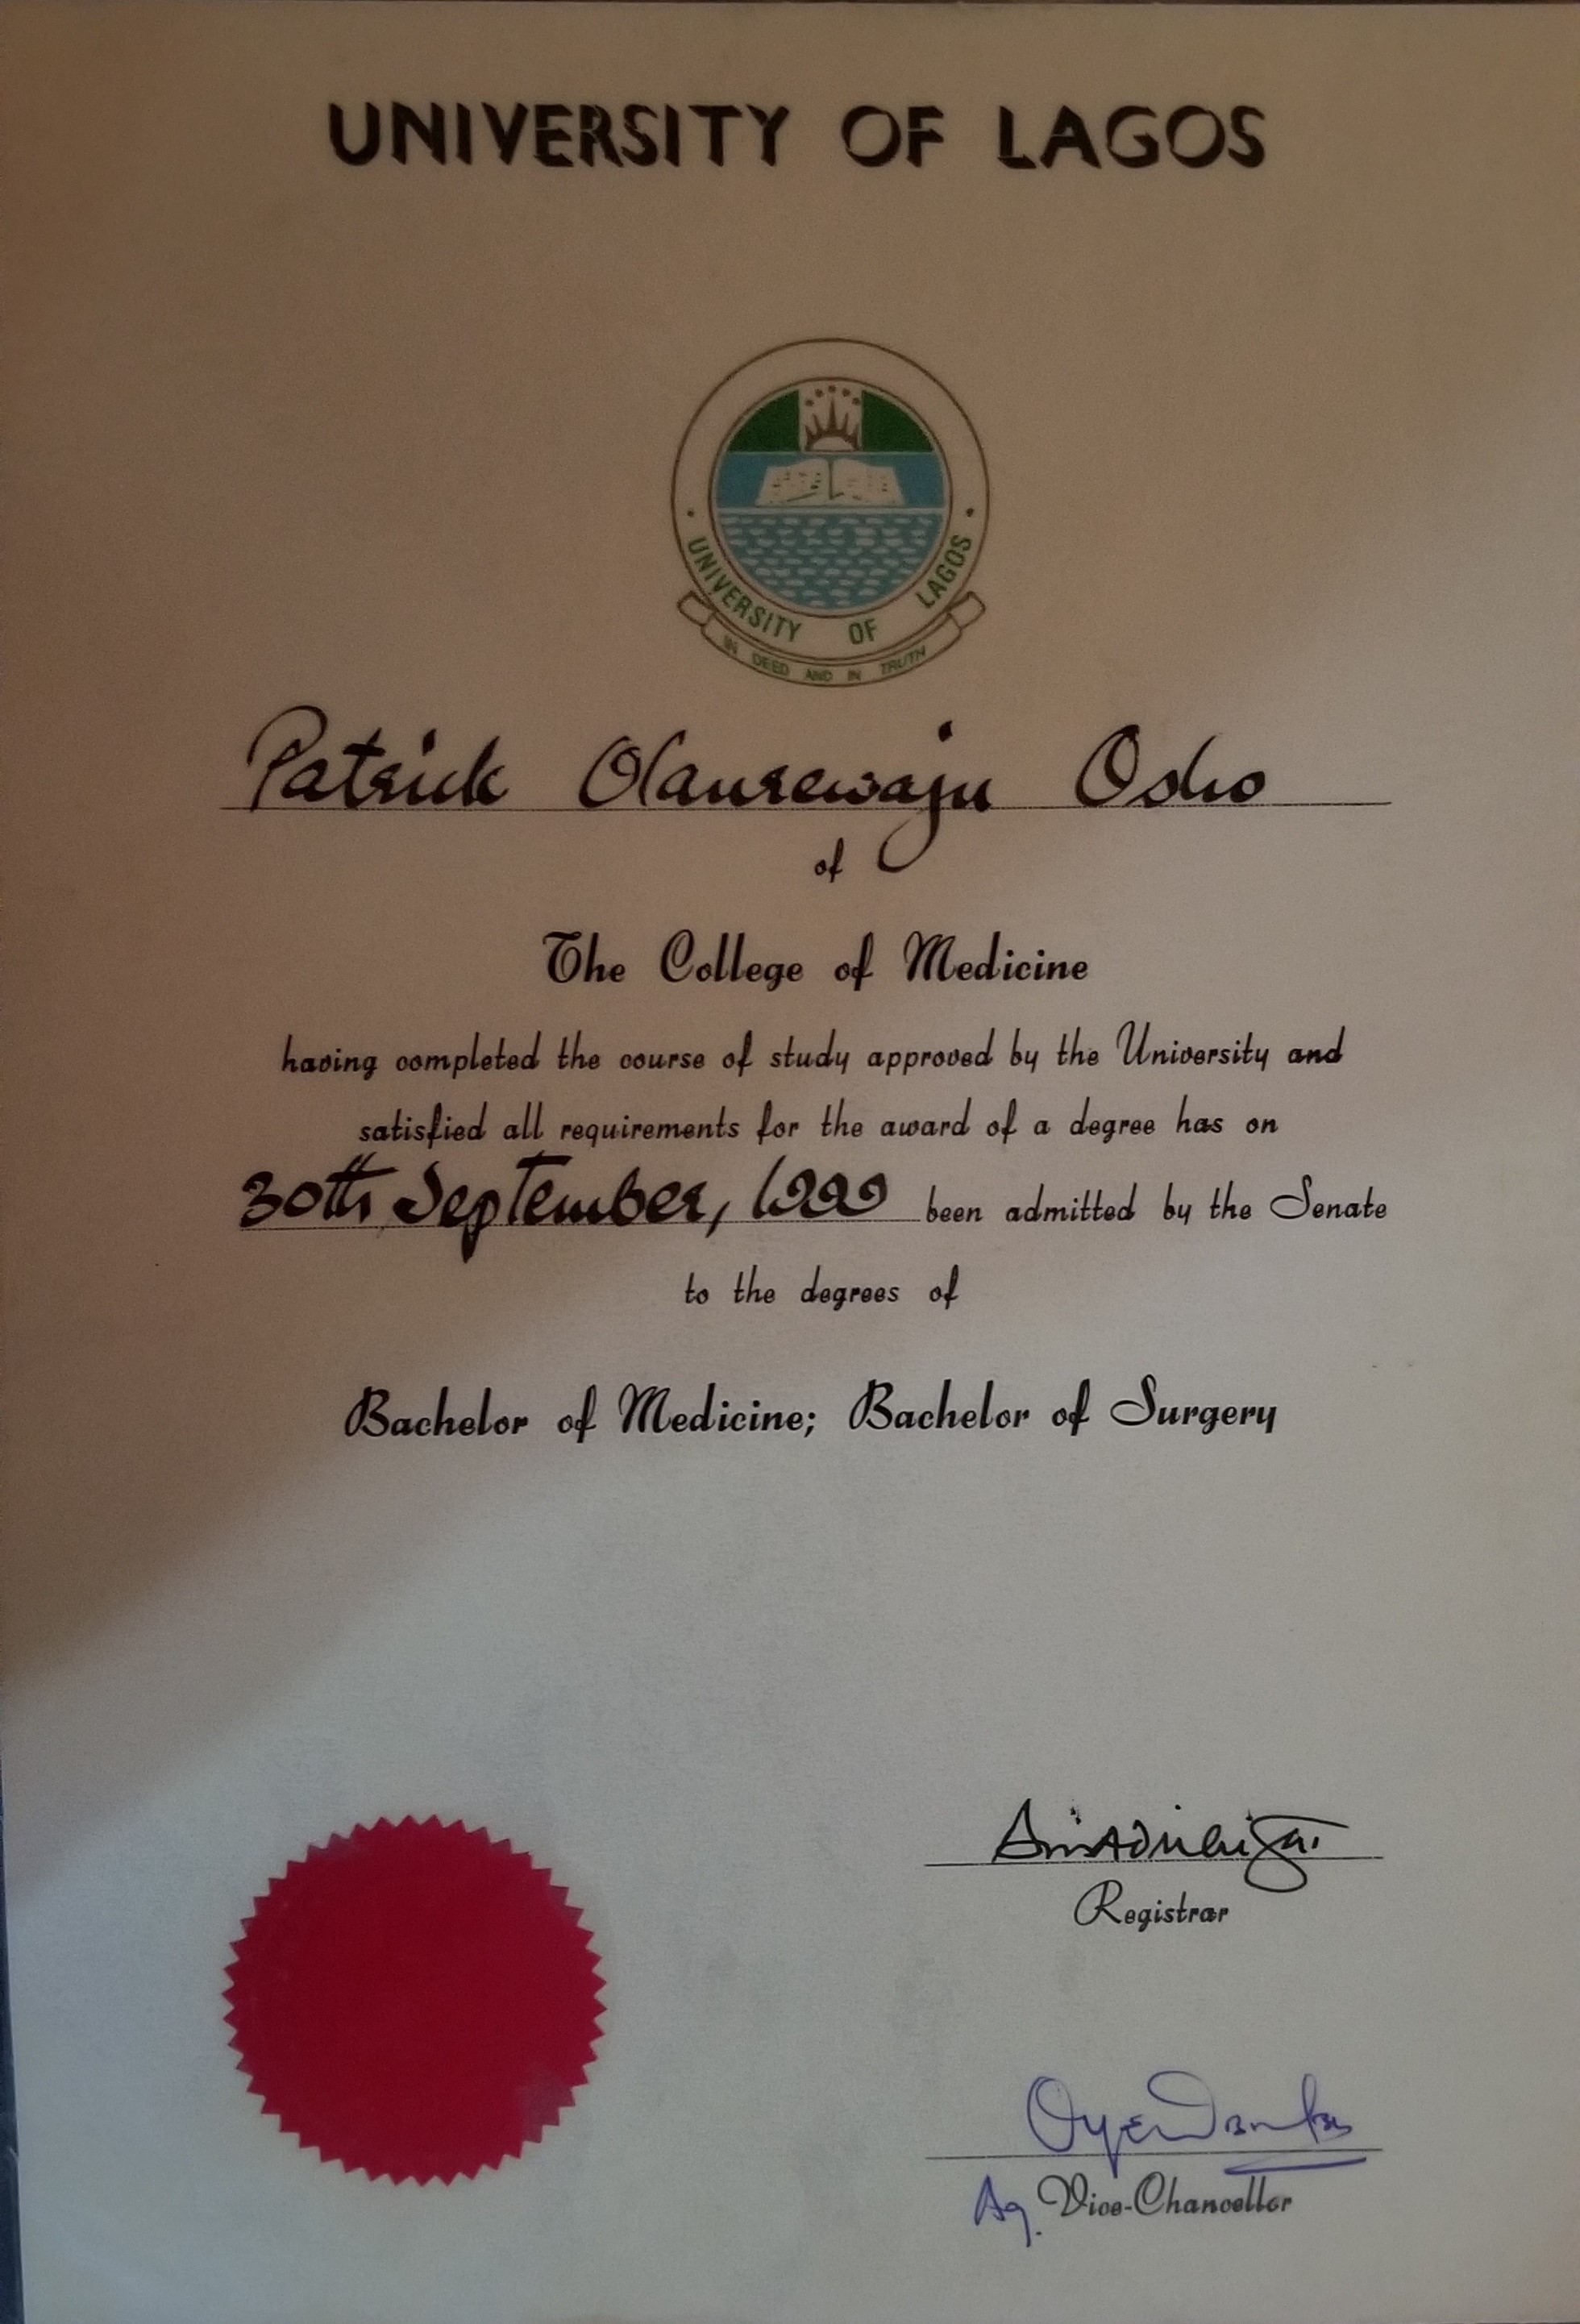 UNIVERSITY OF LAGOS
UNIVERSITY OF LAGOS
IN DEED AND IN TRUTH
Patrick Olanrewaju Osho
of
The College of Medicine
having completed the course of study approved by the University and
satisfied all requirements for the award of a degree has on
30th September, 1999 been admitted by the Senate
to the degrees of
Bachelor of Medicine; Bachelor of Surgery
Registrar
Ag. Vice-Chancellor